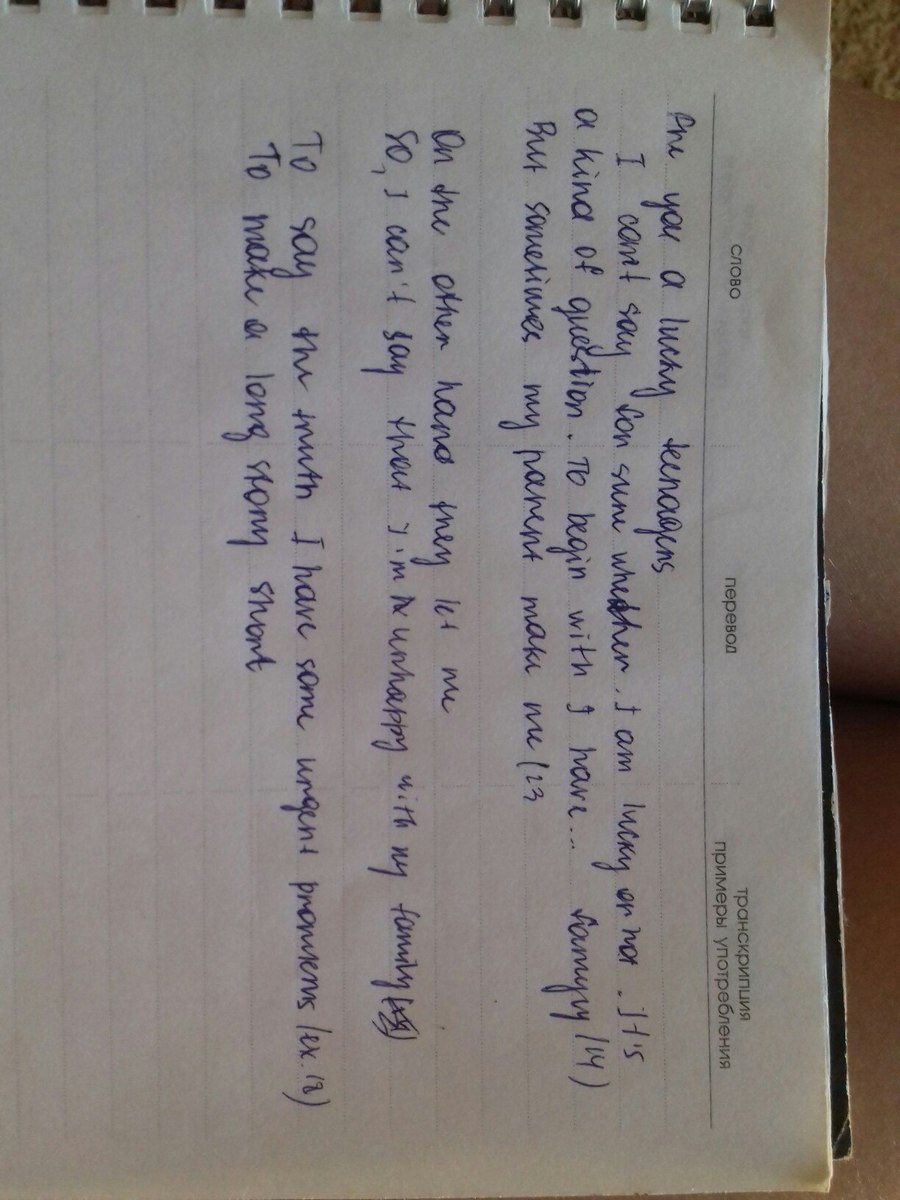 слово
перевод
транскрипция
примеры употребления
Are you a lucky teenagers
I can't say for sure whether I am lucky or not. It's
a kind of question. To begin with I have... (14)
But sometimes my parent make me (23
On the other hand they let me
So, I can't say that I'm unhappy with my family
To say the truth I have some urgent problems (ex. 18)
To make a long story short